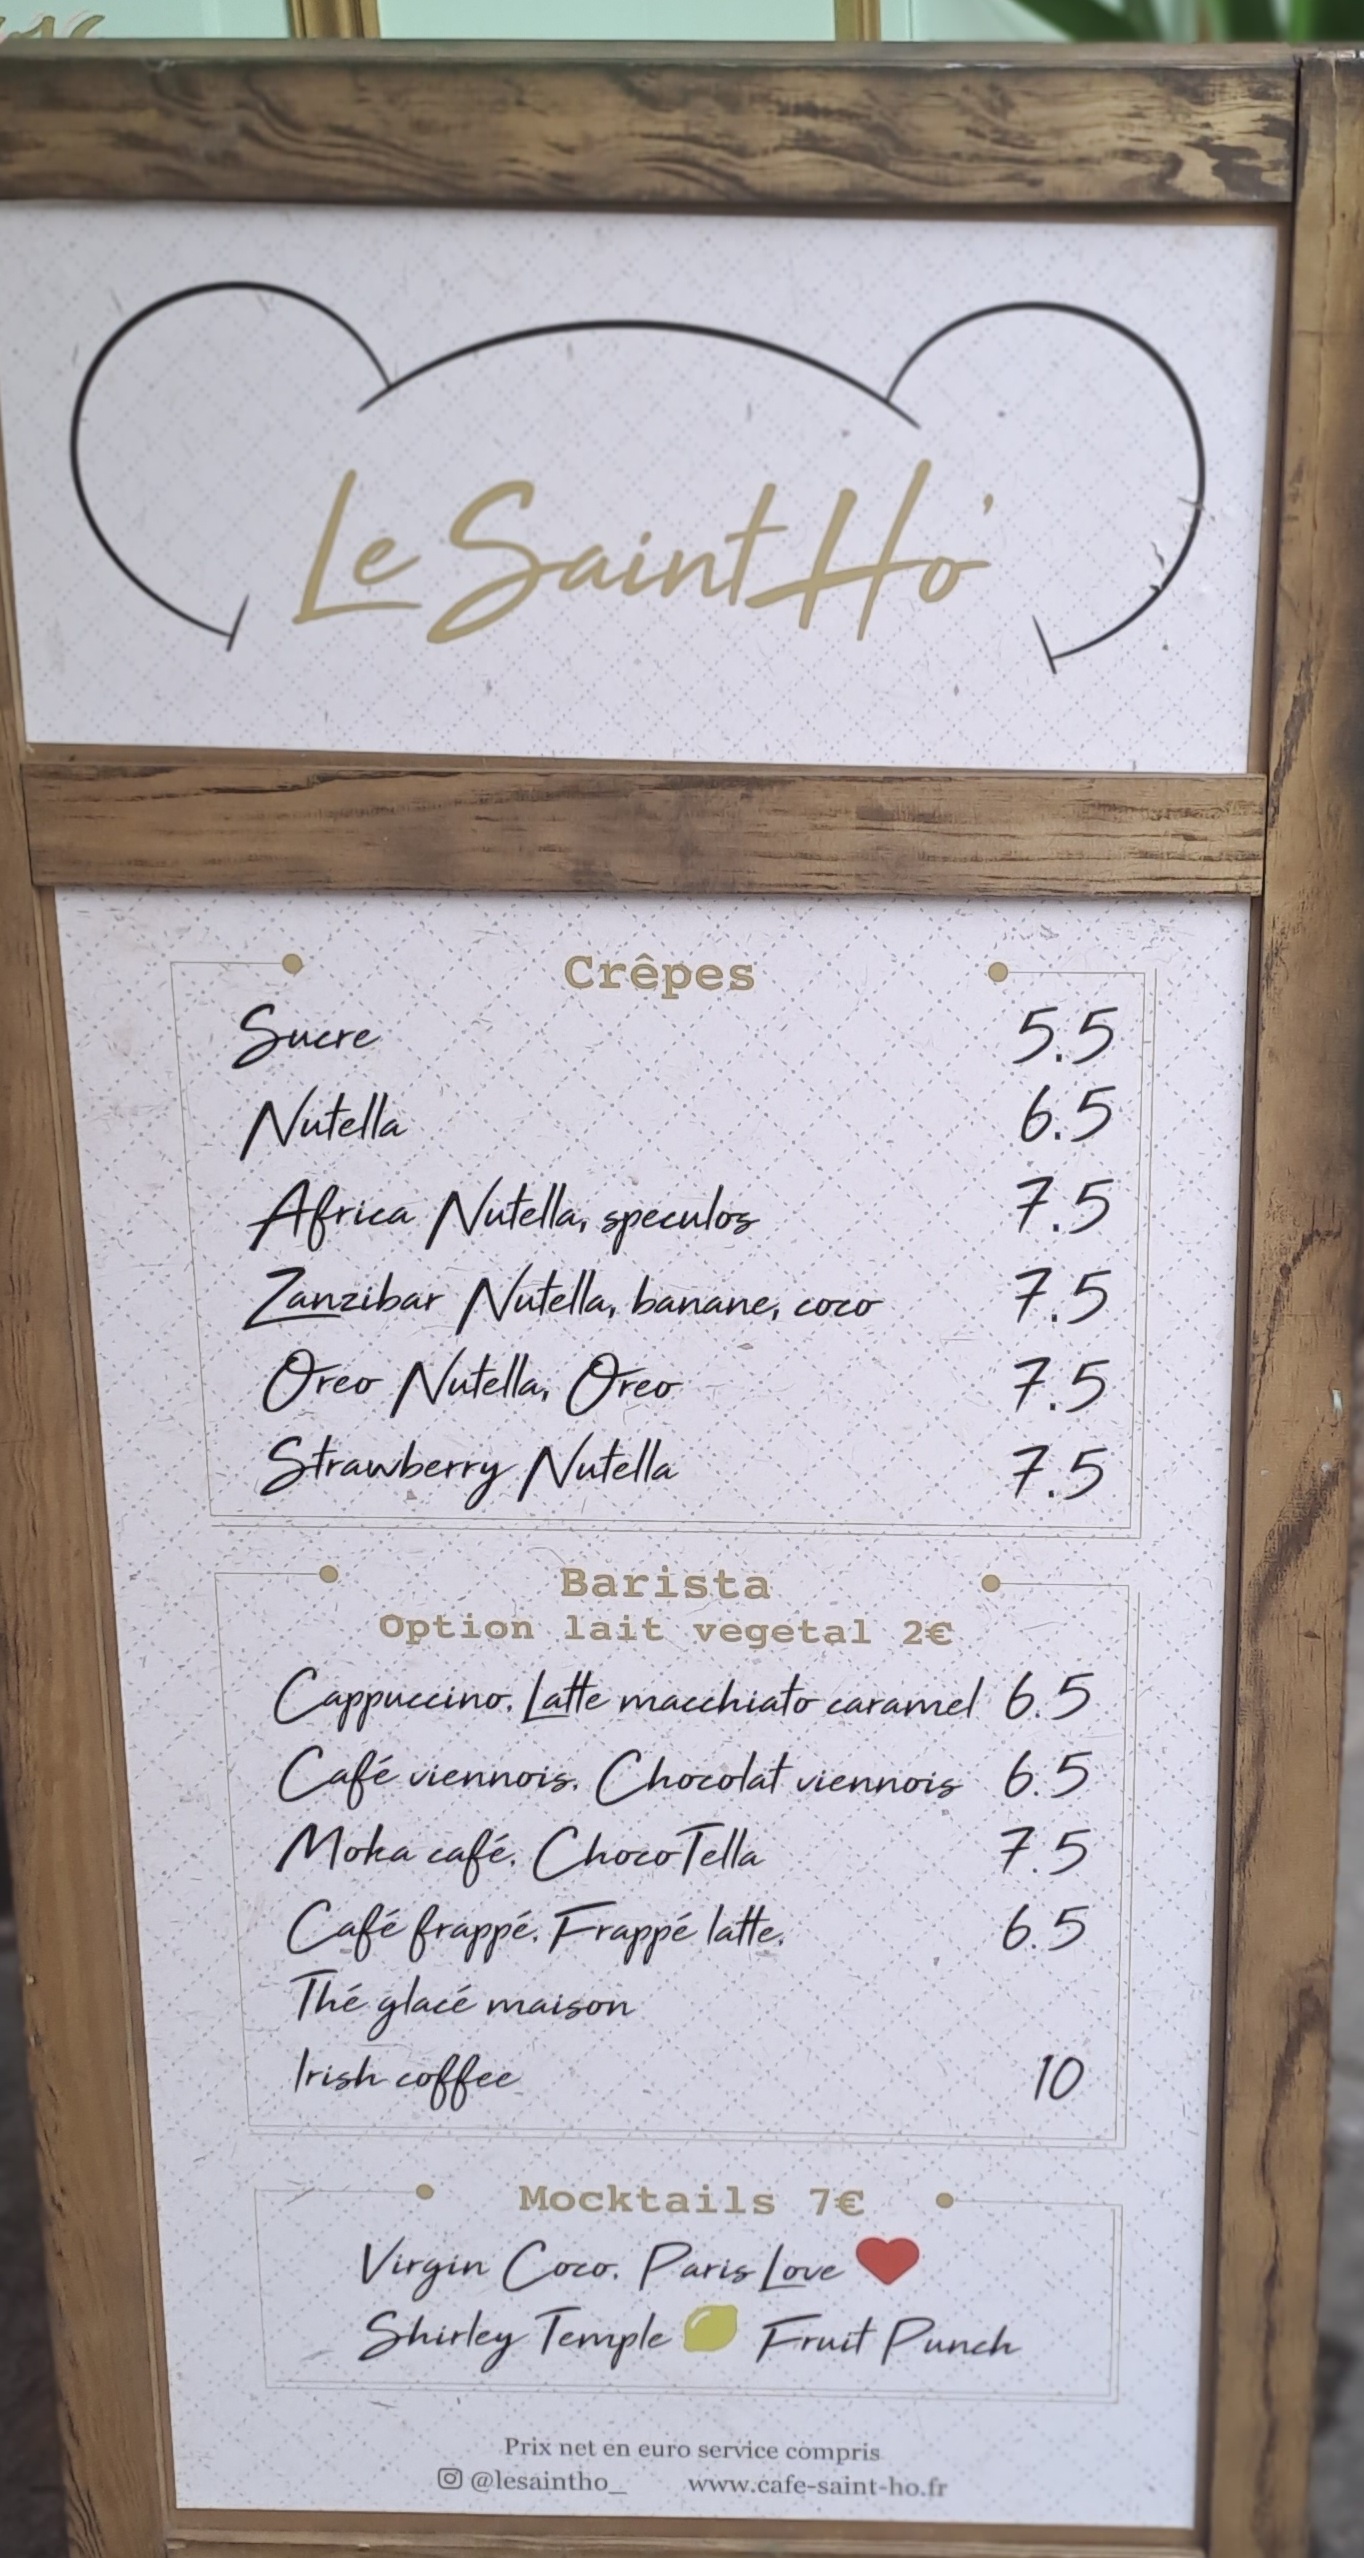 Le Saint Ho'
Crêpes
Sucre 5.5
Nutella 6.5
Africa Nutella, speculos 7.5
Zanzibar Nutella, banane, coco 7.5
Oreo Nutella, Oreo 7.5
Strawberry Nutella 7.5
Barista
Option lait vegetal 2€
Cappuccino. Latte macchiato caramel 6.5
Café viennois. Chocolat viennois 6.5
Moka café. ChocoTella 7.5
Café frappé. Frappé latte. 6.5
Thé glacé maison
Irish coffee 10
Mocktails 7€
Virgin Coco. Paris Love ❤️
Shirley Temple 🍋 Fruit Punch
Prix net en euro service compris
@lesaintho_ www.cafe-saint-ho.fr